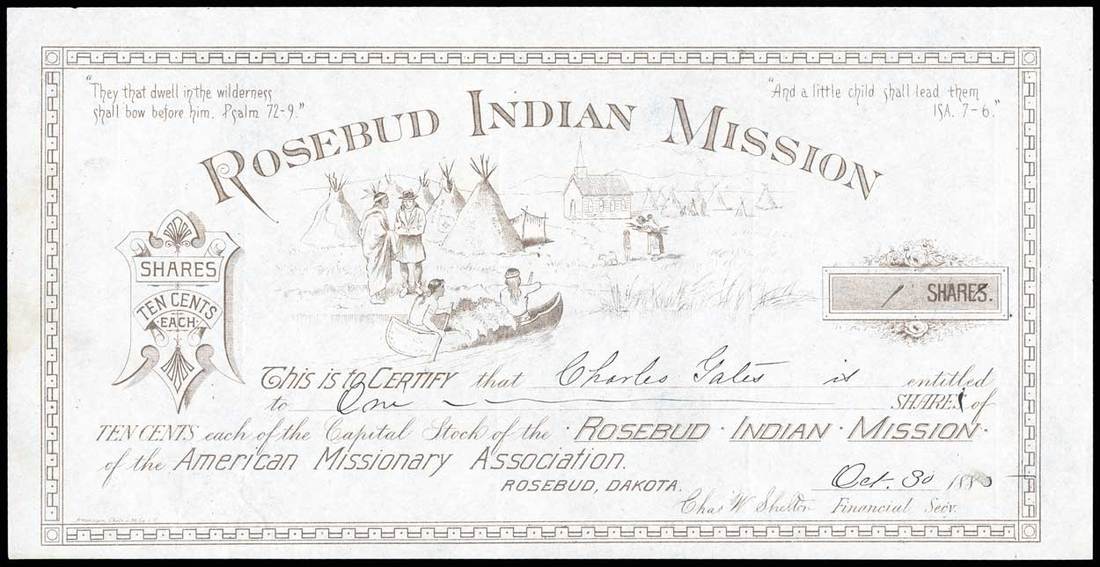 "They that dwell in the wilderness
shall bow before him. Psalm 72-9."
"And a little child shall lead them
ISA. 7-6."
ROSEBUD INDIAN MISSION
SHARES
TEN CENTS
EACH.
1 SHARES.
This is to CERTIFY that Charles Gates is entitled
to One SHARES of
TEN CENTS each of the Capital Stock of the · ROSEBUD · INDIAN · MISSION ·
of the American Missionary Association.
ROSEBUD, DAKOTA. Oct. 30
Chas W Shelton Financial Secy.